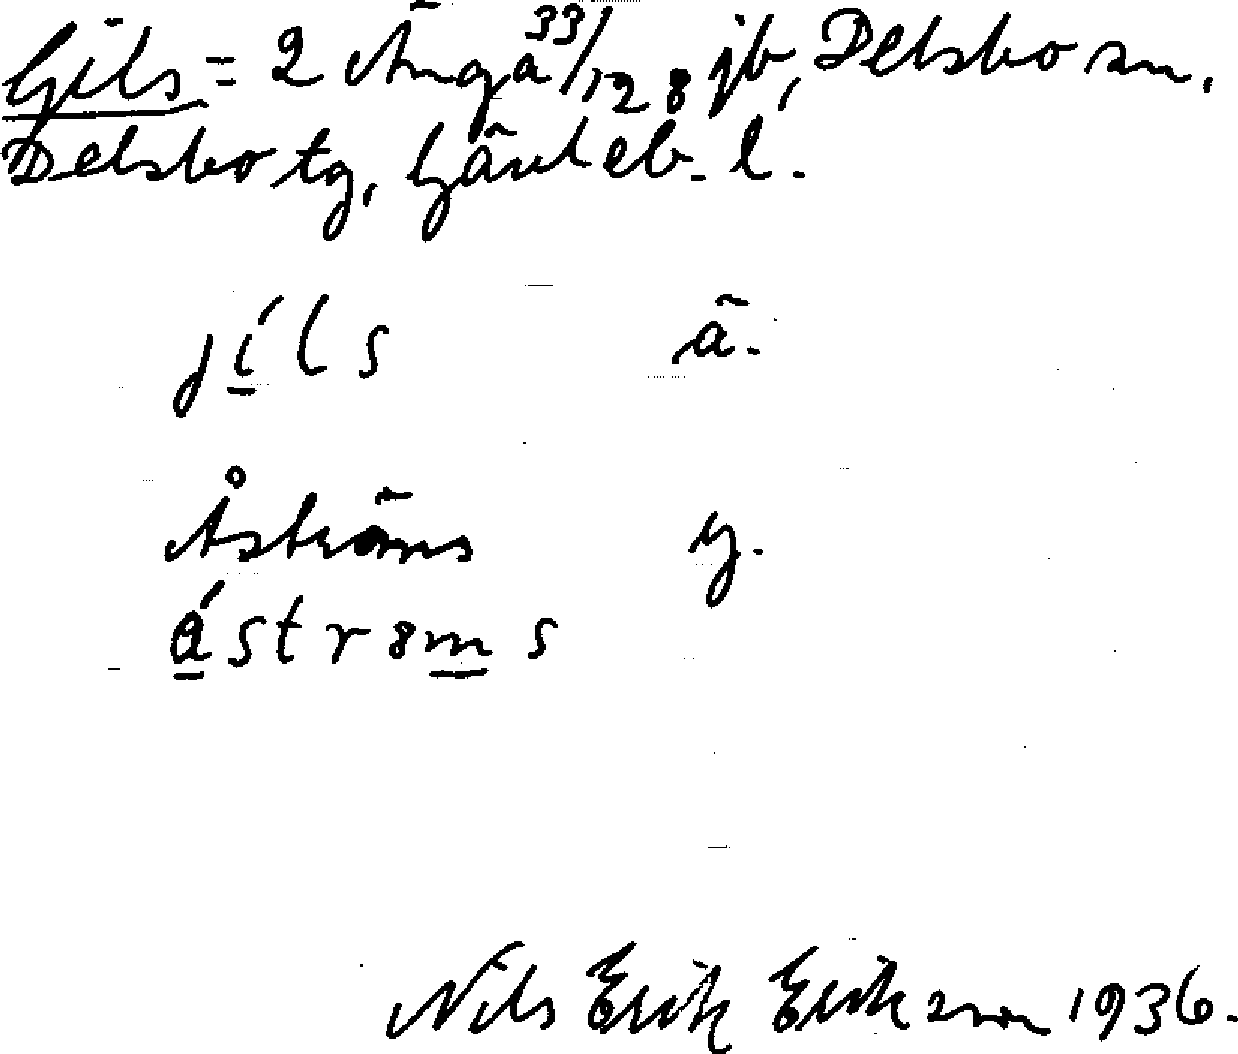 Gils = 2 Änga 33/128 jb, Delsbo sn,
Delsbo tg, Gävleb. l.
jíls ä.
Åströms y.
ástrɵms
Nils Erik Eriksson 1936.